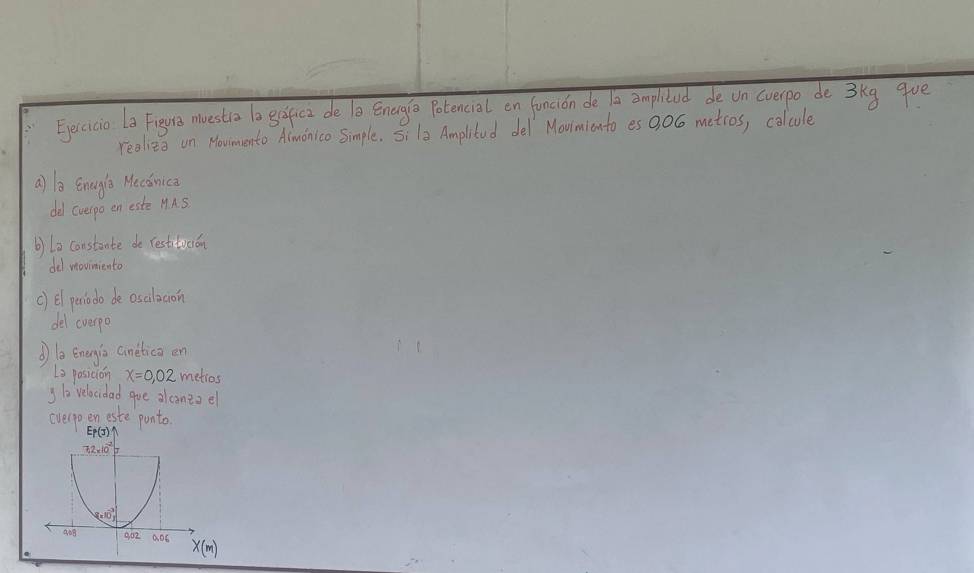 Ejercicio: La Figura muestra la gráfica de la Energía Potencial en función de la amplitud de un cuerpo de 3kg que
realiza un Movimiento Armónico Simple. Si la Amplitud del Movimiento es 0,06 metros, calcule
a) la Energía Mecánica
del cuerpo en este M.A.S.
b) La constante de restitución
del movimiento
c) El período de oscilación
del cuerpo
d) la Energía Cinética en
La posición x=0,02 metros
y la velocidad que alcanza el
cuerpo en este punto.
Ep(J)
7,2x10⁻² J
8x10⁻³ J
0,08 0,02 0,06
X(m)